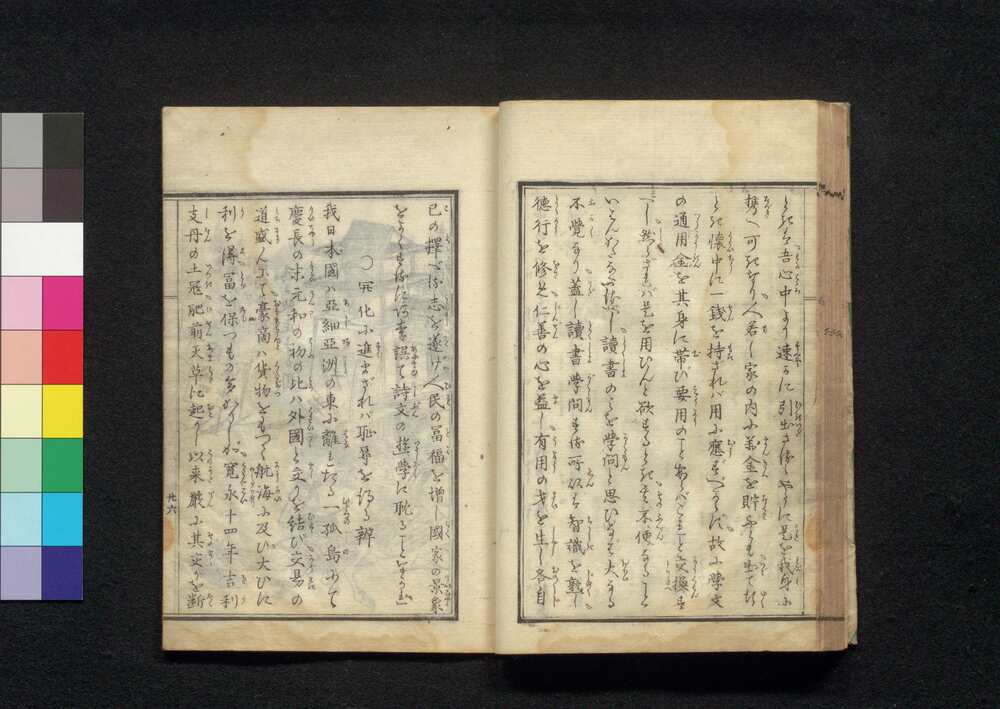 ときは吾心中より速かに引出さるゝやうに是を我身に
携へ可きなり人若し家の内に萬金を貯ふるも出て
とき懐中に一銭を持されバ用に應ずべからず故に學文
の通用金を其身に帯び要用のことあらバこまごまと交換す
べし然らざれバ是を用ひんと欲するときに至不便なること
いはんかたなかるべし讀書のことを學問と思ひなバ大なる
不覺なり蓋し讀書学問する所以は智識を熟し
徳行を修め仁善の心を益し有用の才を生し各自
己の擇べる志を遂げ人民の冨福を増し國家の景象
をよくするに詩文の遊学に恥ることなかれ
〇開化に進まざれバ恥辱を得る辨
我日本國ハ亞細亞洲の東に離れたる一孤島にして
慶長の末元和の初の比ハ外國と交りを結び交易の
道盛んにして豪商ハ貨物をもつて航海に及び大ひに
利を得冨を保つもの多かりしが寛永十四年吉利
支丹の土冦肥前天草に起りし以来嚴に其交りを断
廿六